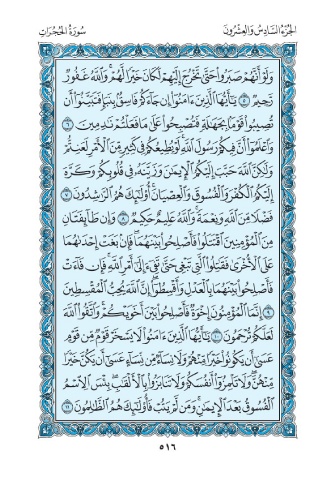 الجزء السادس والعشرون
سورة الحجرات
وَلَوْ أَنَّهُمْ صَبَرُوا۟ حَتَّىٰ تَخْرُجَ إِلَيْهِمْ لَكَانَ خَيْرًا لَّهُمْ ۚ وَٱللَّهُ غَفُورٌ
رَّحِيمٌ ٥ يَٰٓأَيُّهَا ٱلَّذِينَ ءَامَنُوٓا۟ إِن جَآءَكُمْ فَاسِقٌۢ بِنَبَإٍ فَتَبَيَّنُوٓا۟ أَن
تُصِيبُوا۟ قَوْمًۢا بِجَهَٰلَةٍ فَتُصْبِحُوا۟ عَلَىٰ مَا فَعَلْتُمْ نَٰدِمِينَ ٦
وَٱعْلَمُوٓا۟ أَنَّ فِيكُمْ رَسُولَ ٱللَّهِ ۚ لَوْ يُطِيعُكُمْ فِى كَثِيرٍ مِّنَ ٱلْأَمْرِ لَعَنِتُّمْ
وَلَٰكِنَّ ٱللَّهَ حَبَّبَ إِلَيْكُمُ ٱلْإِيمَٰنَ وَزَيَّنَهُۥ فِى قُلُوبِكُمْ وَكَرَّهَ
إِلَيْكُمُ ٱلْكُفْرَ وَٱلْفُسُوقَ وَٱلْعِصْيَانَ ۚ أُو۟لَٰٓئِكَ هُمُ ٱلرَّٰشِدُونَ ٧
فَضْلًا مِّنَ ٱللَّهِ وَنِعْمَةً ۚ وَٱللَّهُ عَلِيمٌ حَكِيمٌ ٨ وَإِن طَآئِفَتَانِ
مِنَ ٱلْمُؤْمِنِينَ ٱقْتَتَلُوا۟ فَأَصْلِحُوا۟ بَيْنَهُمَا ۖ فَإِنۢ بَغَتْ إِحْدَىٰهُمَا
عَلَى ٱلْأُخْرَىٰ فَقَٰتِلُوا۟ ٱلَّتِى تَبْغِى حَتَّىٰ تَفِىٓءَ إِلَىٰٓ أَمْرِ ٱللَّهِ ۚ فَإِن فَآءَتْ
فَأَصْلِحُوا۟ بَيْنَهُمَا بِٱلْعَدْلِ وَأَقْسِطُوٓا۟ ۖ إِنَّ ٱللَّهَ يُحِبُّ ٱلْمُقْسِطِينَ
٩ إِنَّمَا ٱلْمُؤْمِنُونَ إِخْوَةٌ فَأَصْلِحُوا۟ بَيْنَ أَخَوَيْكُمْ ۚ وَٱتَّقُوا۟ ٱللَّهَ
لَعَلَّكُمْ تُرْحَمُونَ ١٠ يَٰٓأَيُّهَا ٱلَّذِينَ ءَامَنُوا۟ لَا يَسْخَرْ قَوْمٌ مِّن قَوْمٍ
عَسَىٰٓ أَن يَكُونُوا۟ خَيْرًا مِّنْهُمْ وَلَا نِسَآءٌ مِّن نِّسَآءٍ عَسَىٰٓ أَن يَكُنَّ خَيْرًا
مِّنْهُنَّ ۖ وَلَا تَلْمِزُوٓا۟ أَنفُسَكُمْ وَلَا تَنَابَزُوا۟ بِٱلْأَلْقَٰبِ ۖ بِئْسَ ٱلِٱسْمُ
ٱلْفُسُوقُ بَعْدَ ٱلْإِيمَٰنِ ۚ وَمَن لَّمْ يَتُبْ فَأُو۟لَٰٓئِكَ هُمُ ٱلظَّٰلِمُونَ ١١
٥١٦